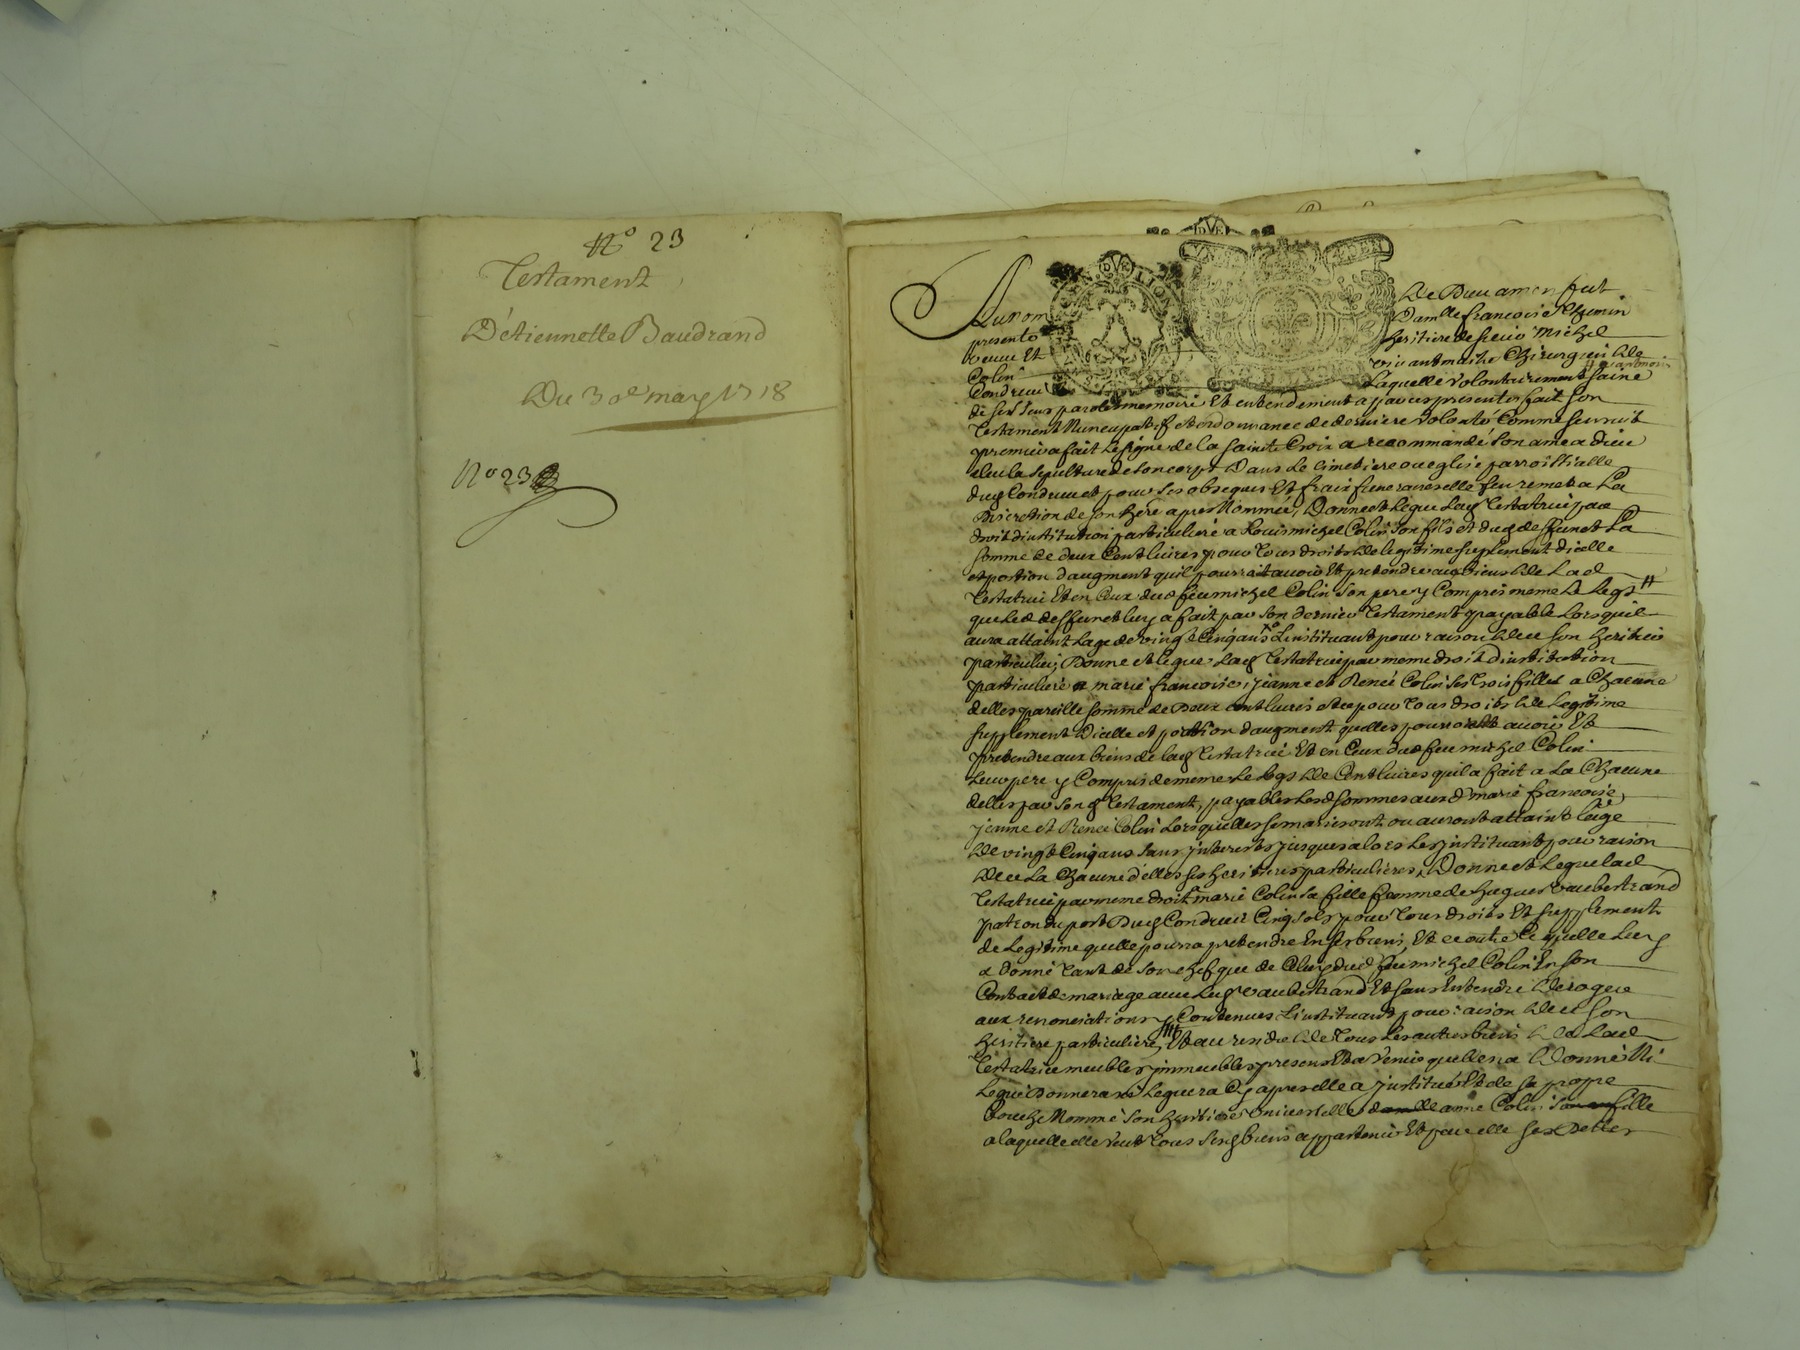 N° 23
Testament
D'étiennette Baudrand
Du 30e may 1718
N° 23
Au nom De Dieu amen fut
presente Damlle francoise Themin
veuve Et heritiere de sieur Michel
Colin vivant maitre Chirurgien de
Condrieu Laquelle volontairement saine
de ses sens parole memoire Et entendement a par ces presentes fait son
Testament Nuncupatif et ordonnance de derniere volonté Comme sensuit
premier a fait le signe de la sainte Croix a recommandé son ame a dieu
elu la sepulture de son corps Dans Le Cimetiere ou eglise parroissialle
dud Condrieu et pour ses obseques Et fraix funeraires elle sen remet a La
Discretion de son here apres Nommée, Donne et Legue Lad Testatrice par
droit dinstitution particuliere a Louis michel Colin son fils et dud deffunct La
somme de deux Cent livres pour Tous droits de legitime suplement dicelle
et portion daugment quil pourroit avoir Et pretendre aux biens de Lad
Testatrice Et en Ceux dud feu michel Colin son pere y Compris meme Le Legs
que led deffunct luy a fait par son dernier Testament payable Lorsquil
aura attaint Lage de vingt Cinq ans Linstituant pour raison de ce son heritier
particulier, Donne et legue Lad Testatrice par meme droit dinstitution
particuliere a marie francoise, jeanne et Renée Colin ses Trois filles a Chacune
delles pareille somme de Deux cent livres et ce pour Tous droits de Legitime
supplement Dicelle et portion daugment quelles pourroient avoir Et
pretendre aux biens de lad Testatrice Et en Ceux dud feu michel Colin
Leur pere y Compris de meme Le legs de Cent livres quil a fait a La Chacune
delles par son d Testament, payables Lesd sommes auxd marie francoise,
jeanne et Renée Colin Lors quelles se marieront ou auront attaint Lage
de vingt Cinq ans sans jnterests jusques alors Les jnstituant pour raison
de ce La Chacune d'elles ses heritieres particulieres, Donne et Legue lad
Testatrice par meme droit marie Colin sa fille femme de hugues vaubertrand
patron du port Dud Condrieu Cinq sols pour Tous droits Et supplement
de Legitime quelle pourra pretendre En ses biens, Et ce outre Ce quelle Luy
a donné Tant de son chef que de Celuy dud feu michel Colin En son
Contract de mariage avec Led vaubertrand Et sans Entendre deroger
aux renonciations y Contenues Linstituant pour raison de ce son
heritiere particuliere, Et au rendu de Tous Les autres biens de Lad
Testatrice meubles jmmeubles presens Et a Venir quelle na Donné Ni
Legué Donnera ni Leguera Cy apres elle a jnstitué Et de sa propre
bouche Nommé son heritiere Universelle anne Colin fille
a laquelle elle veut Tous sesd biens appartenir Et par elle ses Dettes